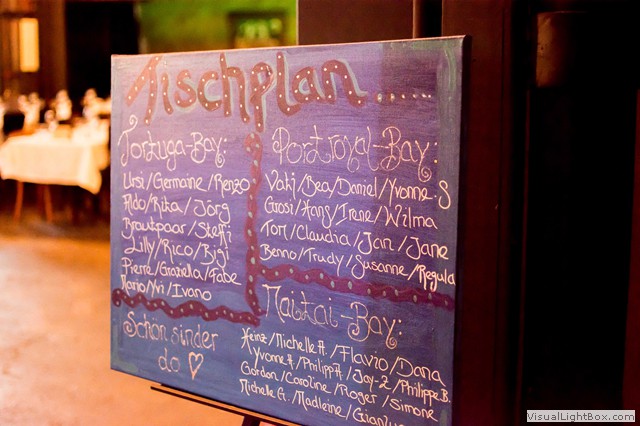 Tischplan......
Tortuga-Bay:
Ursi/Germaine/Renzo
Aldo/Rita/Jörg
Brautpaar/Steffi
Lilly/Rico/Bigi
Pierre/Graziella/Fabe
Mario/Yvi/Ivano
Schön sinder
do ♡
Portroyal-Bay:
Vaki/Bea/Daniel/Yvonne.S
Grosi/Hans/Irene/Wilma
Tom/Claudia/Jan/Jane
Benno/Trudy/Susanne/Regula
Maitai-Bay:
Heinz/Michelle A./Flavio/Dana
Yvonne A./Philipp A./Jay-Z/Philippe B.
Gordon/Caroline/Roger/Simone
Michelle G./Madleine/Gianluca
VisualLightBox.com